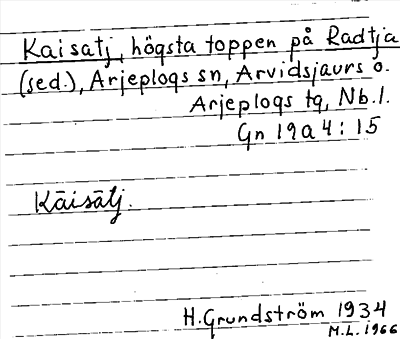 Kaisatj, högsta toppen på Radtja
(sed.), Arjeplogs sn, Arvidsjaurs o.
Arjeplogs tg, Nb.l.
Gn 19a 4:15
Kāisātj.
H. Grundström 1934
M.L. 1966